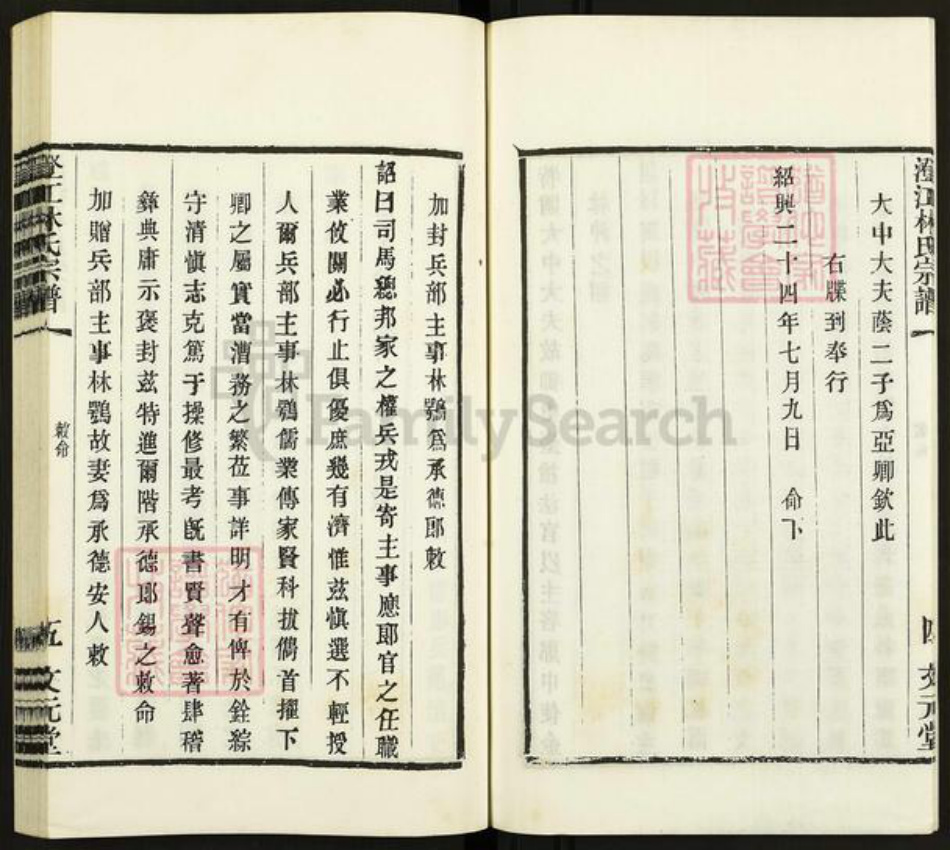 澄江林氏宗譜
大中大夫蔭二子爲亞卿欽此
右牒到奉行
紹興二十四年七月九日 命下
四 文元堂
加封兵部主事林鶚爲承德郎敕
詔曰司馬總邦家之權兵戎是寄主事應郎官之任職
業攸關必行止俱優庶幾有濟惟茲愼選不輕授
人爾兵部主事林鶚儒業傳家賢科拔儁首擢下
卿之屬實當漕務之繁莅事詳明才有俾於銓綜
守清愼志克篤于操修最考旣書賢聲愈著肆稽
彝典庸示褒封茲特進爾階承德郎錫之敕命
加贈兵部主事林鶚故妻爲承德安人敕
澄江林氏宗譜
敕命
五 文元堂
FamilySearch